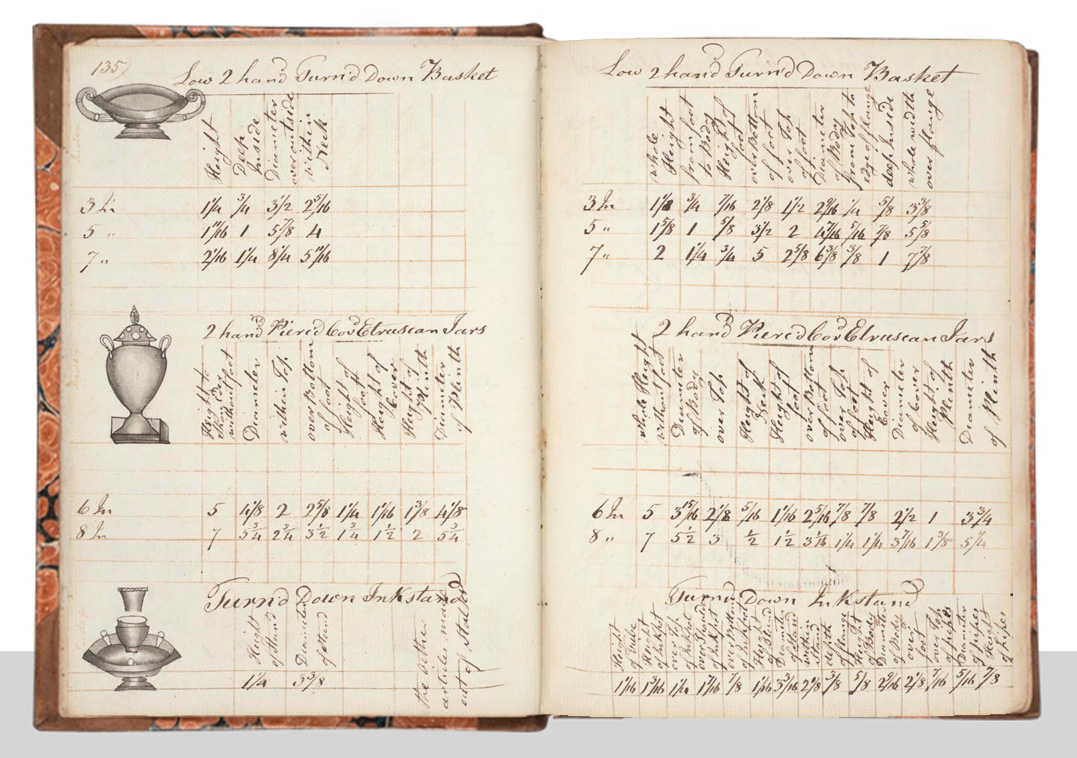 135
Low 2 hand Turn'd Down Basket
Height
Deep inside
Diameter over outside
within Neck
3 In 1¼ ¾ 3½ 2 5/16
5 " 1 11/16 1 5 7/8 4
7 " 2 1/16 1¼ 8¼ 5 11/16
2 hand Pierc'd Cov'd Etruscan Jars
Height to
without foot
Diameter
within Top
over Bottom of foot
Height of foot
Height of Cover
Height of Plinth
Diameter of Plinth
6 In 5 4 1/8 2 2 5/8 1¼ 1 1/16 1 3/8 4 1/8
8 In 7 5¾ 2¾ 3½ 1¾ 1½ 2 5¾
Turn'd Down Inkstand
Height of Stand
Diameter of Stand
the other
articles made
out of
1¼ 3 5/8
Low 2 hand Turn'd Down Basket
whole Height
from foot to Body
Height of foot
over Bottom of foot
over Top of foot
Diameter of Body
from Top to edge of flange
deep inside
whole width over flange
3 In ¾ 7/16 2/8 1½ 2 9/16 ¼ 5/8 3 3/8
5 " 1 5/8 1 5/8 3½ 2 5/16 7/8 5 5/8
7 " 2 1¼ ¾ 5 2 5/8 6 3/8 3/8 1 7 7/8
2 hand Pierc'd Cov'd Etruscan Jars
whole Height without foot
Diameter of Body
over Top
Height of Neck
Height of foot
over Bottom of foot
over Top of foot
Height of Cover
Diameter of Cover
Height of Plinth
Diameter of Plinth
6 In 5 3 15/16 2 1/8 5/16 1 1/16 2 5/16 7/8 7/8 2½ 1 3¾
8 " 7 5½ 3 ½ 1½ 3 1/16 1¼ 1¼ 3 7/16 1 3/8 5¼
Turn'd Down Inkstand
Height
over Top
Height
Diameter
of pipes
1 1/16 1 3/16 1¼ 1 7/16 7/8 1 1/16 3 3/16 2 1/8 3/8 5/8 2 9/16 2 1/8 7/16 5/16 7/8